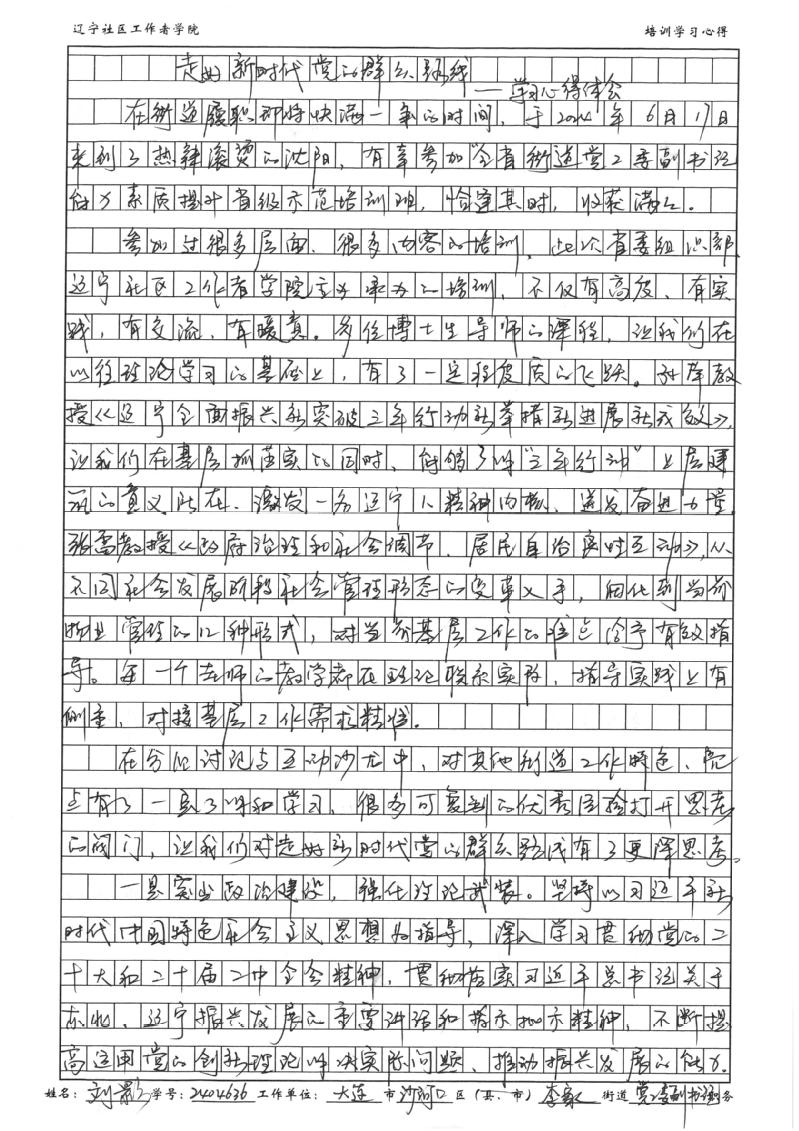 辽宁社区工作者学院 培训学习心得
走好新时代党的群众路线
——学习心得体会
在街道履职即将快满一年的时间，于2024年6月17日
来到了热辣滚烫的沈阳，有幸参加“全省街道党工委副书记
能力素质提升省级示范培训班，恰逢其时，收获满满。
参加过很多层面、很多内容的培训，此次省委组织部
辽宁社区工作者学院主办承办的培训，不仅有高度、有实
践，有交流、有暖意。多位博士生导师的课程，让我们在
以往理论学习的基础上，有了一定程度质的飞跃。孙萍教
授《辽宁全面振兴新突破三年行动新举措新进展新成效》，
让我们在基层抓落实的同时，能够了解“三年行动”上层建
设的意义所在、激发一名辽宁人精神内核、迸发奋进力量，
张雷教授《政府治理和社会调节、居民自治实时互动》，从
不同社会发展阶段社会管理形态的变革入手，细化到当前
物业管理的12种形式，对当前基层工作的难点给予有效指
导。每一个老师的教学都在理论联系实际，指导实践上有
侧重，对接基层工作需求精准。
在分组讨论与互动沙龙中，对其他街道工作特色、亮
点有了一定了解和学习，很多可复制的优秀经验打开思考
的阀门，让我们对走好新时代党的群众路线有了更深思考。
一是突出政治建设，强化理论武装。坚持以习近平新
时代中国特色社会主义思想为指导，深入学习贯彻党的二
十大和二十届二中全会精神，贯彻落实习近平总书记关于
东北、辽宁振兴发展的重要讲话和指示批示精神，不断提
高运用党的创新理论解决实际问题、推动振兴发展的能力。
姓名：刘影 学号：2404636 工作单位：大连市沙河口区（县、市）李家街道党工委副书记职务